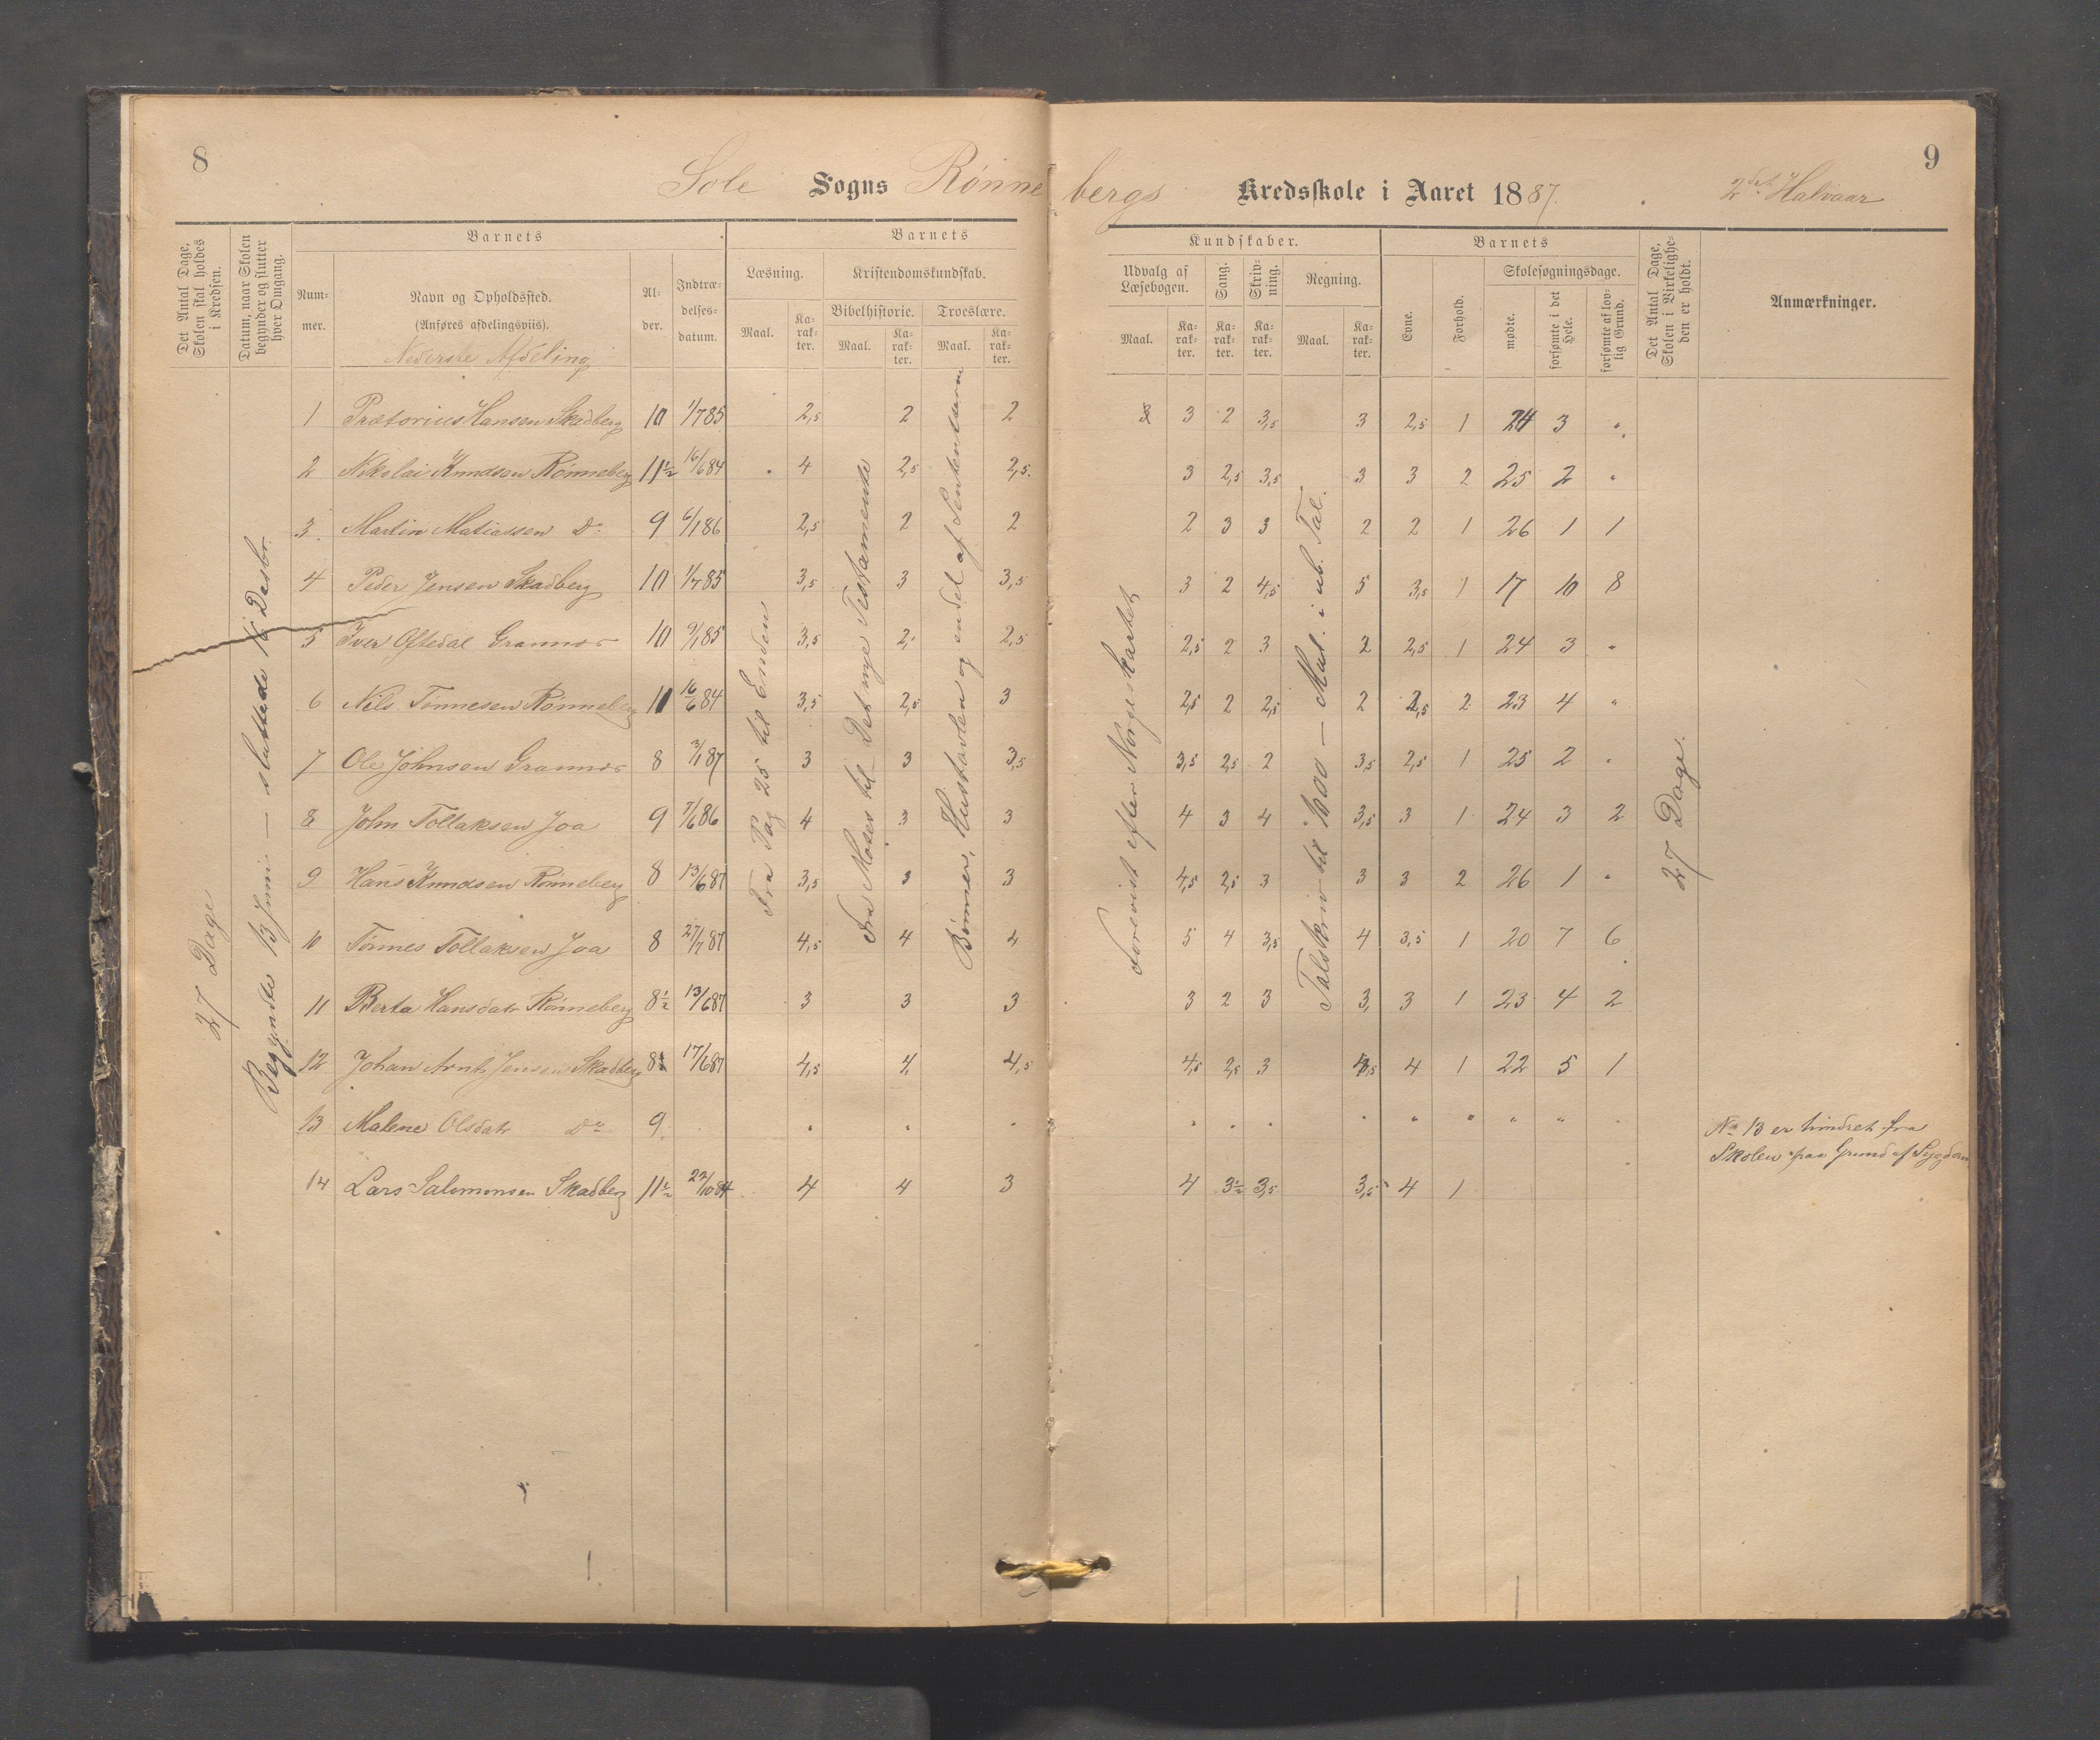 8
Sole Sogns Rønne
bergs Kredsskole i Aaret 1887. 2det Halvaar
9
Det Antal Dage, Skolen skal holdes i Kredsen.
Datum, naar Skolen begynder og slutter hver Omgang.
Barnets
Num-mer.
Navn og Opholdssted.
(Anføres afdelingsviis).
Nederste Afdeling
Al-der.
Indtræ-delses-datum.
Barnets
Læsning.
Kristendomskundskab.
Bibelhistorie.
Troeslære.
Maal.
Ka-rak-ter.
Maal.
Ka-rak-ter.
Maal.
Ka-rak-ter.
Kundskaber.
Udvalg af Læsebogen.
Sang.
Skriv-ning.
Regning.
Maal.
Ka-rak-ter.
Ka-rak-ter.
Ka-rak-ter.
Maal.
Ka-rak-ter.
Barnets
Evne.
Forhold.
Skolesøgningsdage.
mødte.
forsømte i det Hele.
forsømte af lov-lig Grund.
Det Antal Dage, Skolen i Virkelighe-den er holdt.
Anmærkninger.
27 Dage
Begyndte 13 Juni — sluttede 16 Decbr.
Fra Pag 25 til Enden
Fra Moses til Det nye Testamente
Bønner, Hustavlen og endel af Sententserne
Forevist efter Norgeskartet
Talskriv til 1000 — Mul. i ub. Tal.
27 Dage.
1 Prætorius Hansen Skadberg 10 1/7 85 2,5 2 2 3 2 3,5 3 2,5 1 24 3 "
2 Nikolai Knudsen Rønneberg 11½ 16/6 84 4 2,5 2,5 3 2,5 3,5 3 3 2 25 2 "
3 Martin Matiassen Do 9 6/1 86 2,5 2 2 2 3 3 2 2 1 26 1 1
4 Peder Jensen Skadberg 10 1/7 85 3,5 3 3,5 3 2 4,5 5 3,5 1 17 10 8
5 Iver Oftedal Grannes 10 9/1 85 3,5 2 2,5 2,5 2 3 2 2,5 1 24 3 "
6 Nils Tønnesen Rønneberg 11 16/6 84 3,5 2,5 3 2,5 2 2,5 2 2,5 2 23 4 "
7 Ole Johnsen Grannes 8 3/1 87 3 3 3,5 3,5 2,5 2 3,5 2,5 1 25 2 "
8 John Tollaksen Joa 9 7/6 86 4 3 3 4 3 4 3,5 3 1 24 3 2
9 Hans Knudsen Rønneberg 8 13/6 87 3,5 3 3 4,5 2,5 3 3 3 2 26 1 "
10 Tønnes Tollaksen Joa 8 27/7 87 4,5 4 4 5 4 3,5 4 3,5 1 20 7 6
11 Berta Hansdatr Rønneberg 8½ 13/6 87 3 3 3 3 2 3 3 3 1 23 4 2
12 Johan Arnt Jensen Skadberg 8½ 17/6 87 4,5 4 4,5 4,5 2,5 3 4,5 4 1 22 5 1
13 Malene Olsdatr Do 9 " " " " " " " " " " "
No 13 er hindret fra
Skolen paa Grund af Sygdom
14 Lars Salomonsen Skadberg 11½ 22/10 84 4 4 3 4 3½ 3,5 3,5 4 1